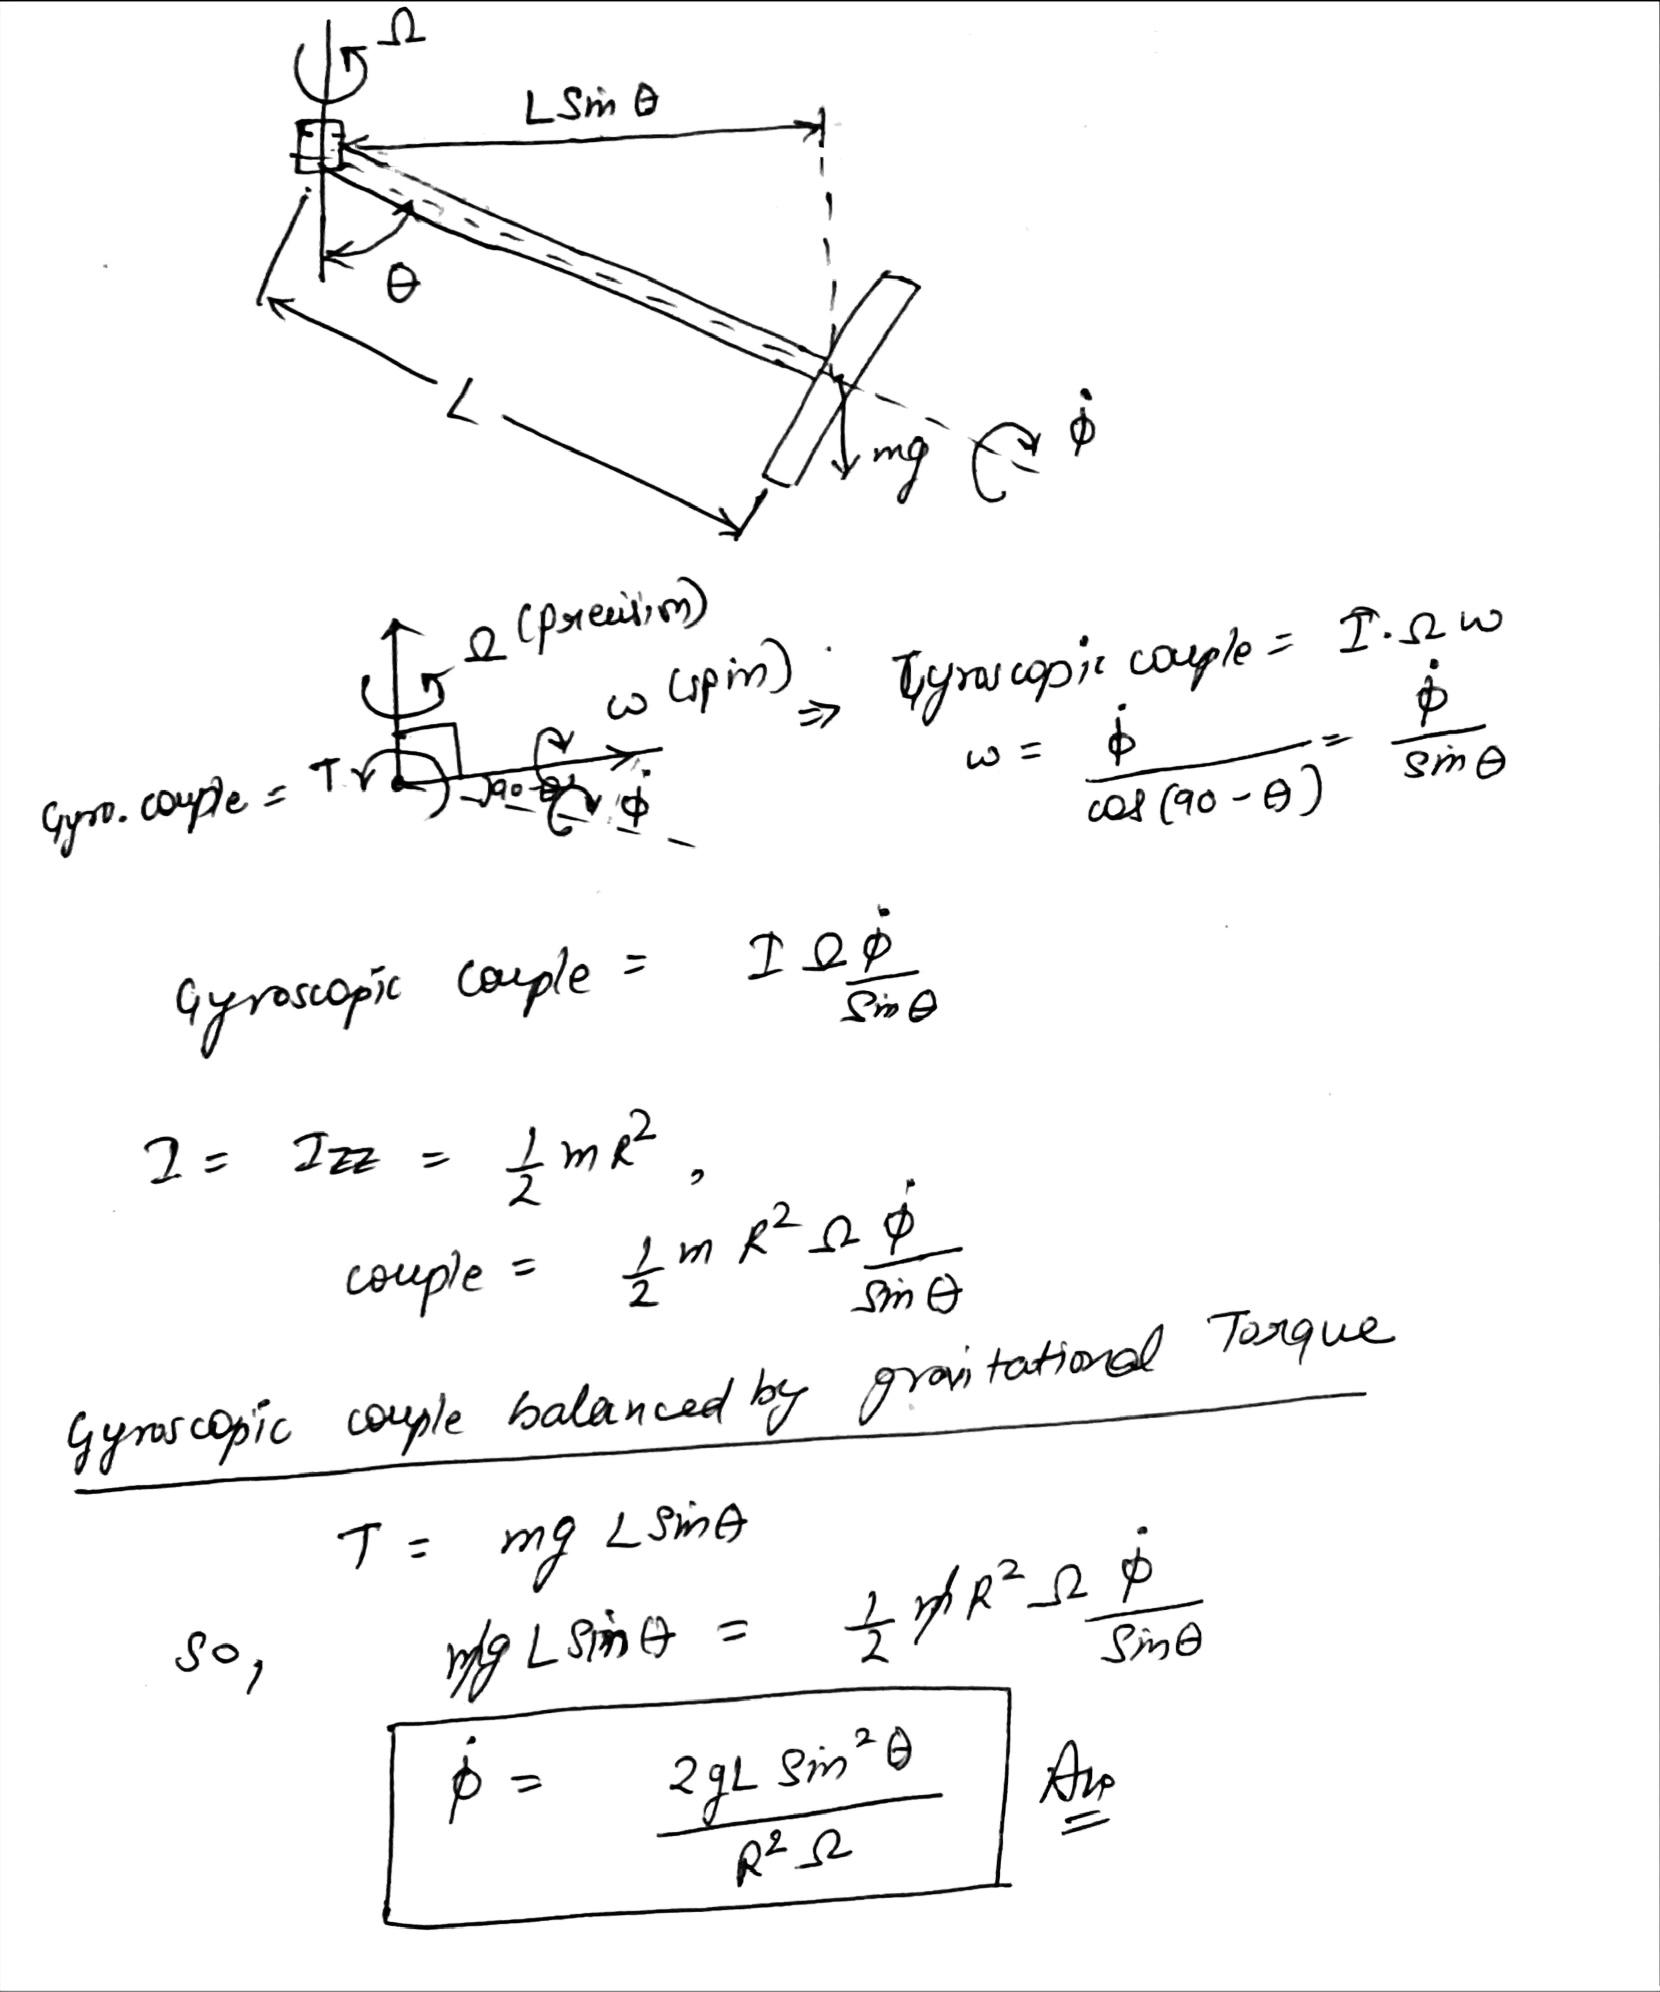 Ω
L Sin θ
θ
L
mg
φ̇
Ω (precision)
ω (spin)
⇒ Gyroscopic couple = I·Ω ω
ω = φ̇ / cos(90-θ) = φ̇ / Sin θ
Gyro. couple = T
90-θ
φ̇
Gyroscopic Couple = I Ω φ̇ / Sin θ
I = Izz = 1/2 m R²,
couple = 1/2 m R² Ω φ̇ / Sin θ
Gyroscopic couple balanced by gravitational Torque
T = mg L Sinθ
so, mg L Sinθ = 1/2 m R² Ω φ̇ / Sinθ
φ̇ = 2gL Sin²θ / R² Ω Ans